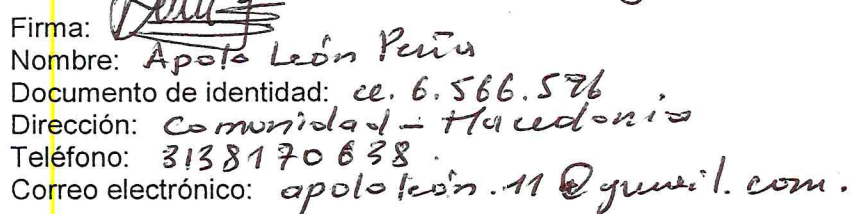 Firma:
Nombre: Apolo León Peña
Documento de identidad: cc. 6.566.576.
Dirección: Comunidad - Macedonia
Teléfono: 3138170638.
Correo electrónico: apolo león.11@gmail.com.